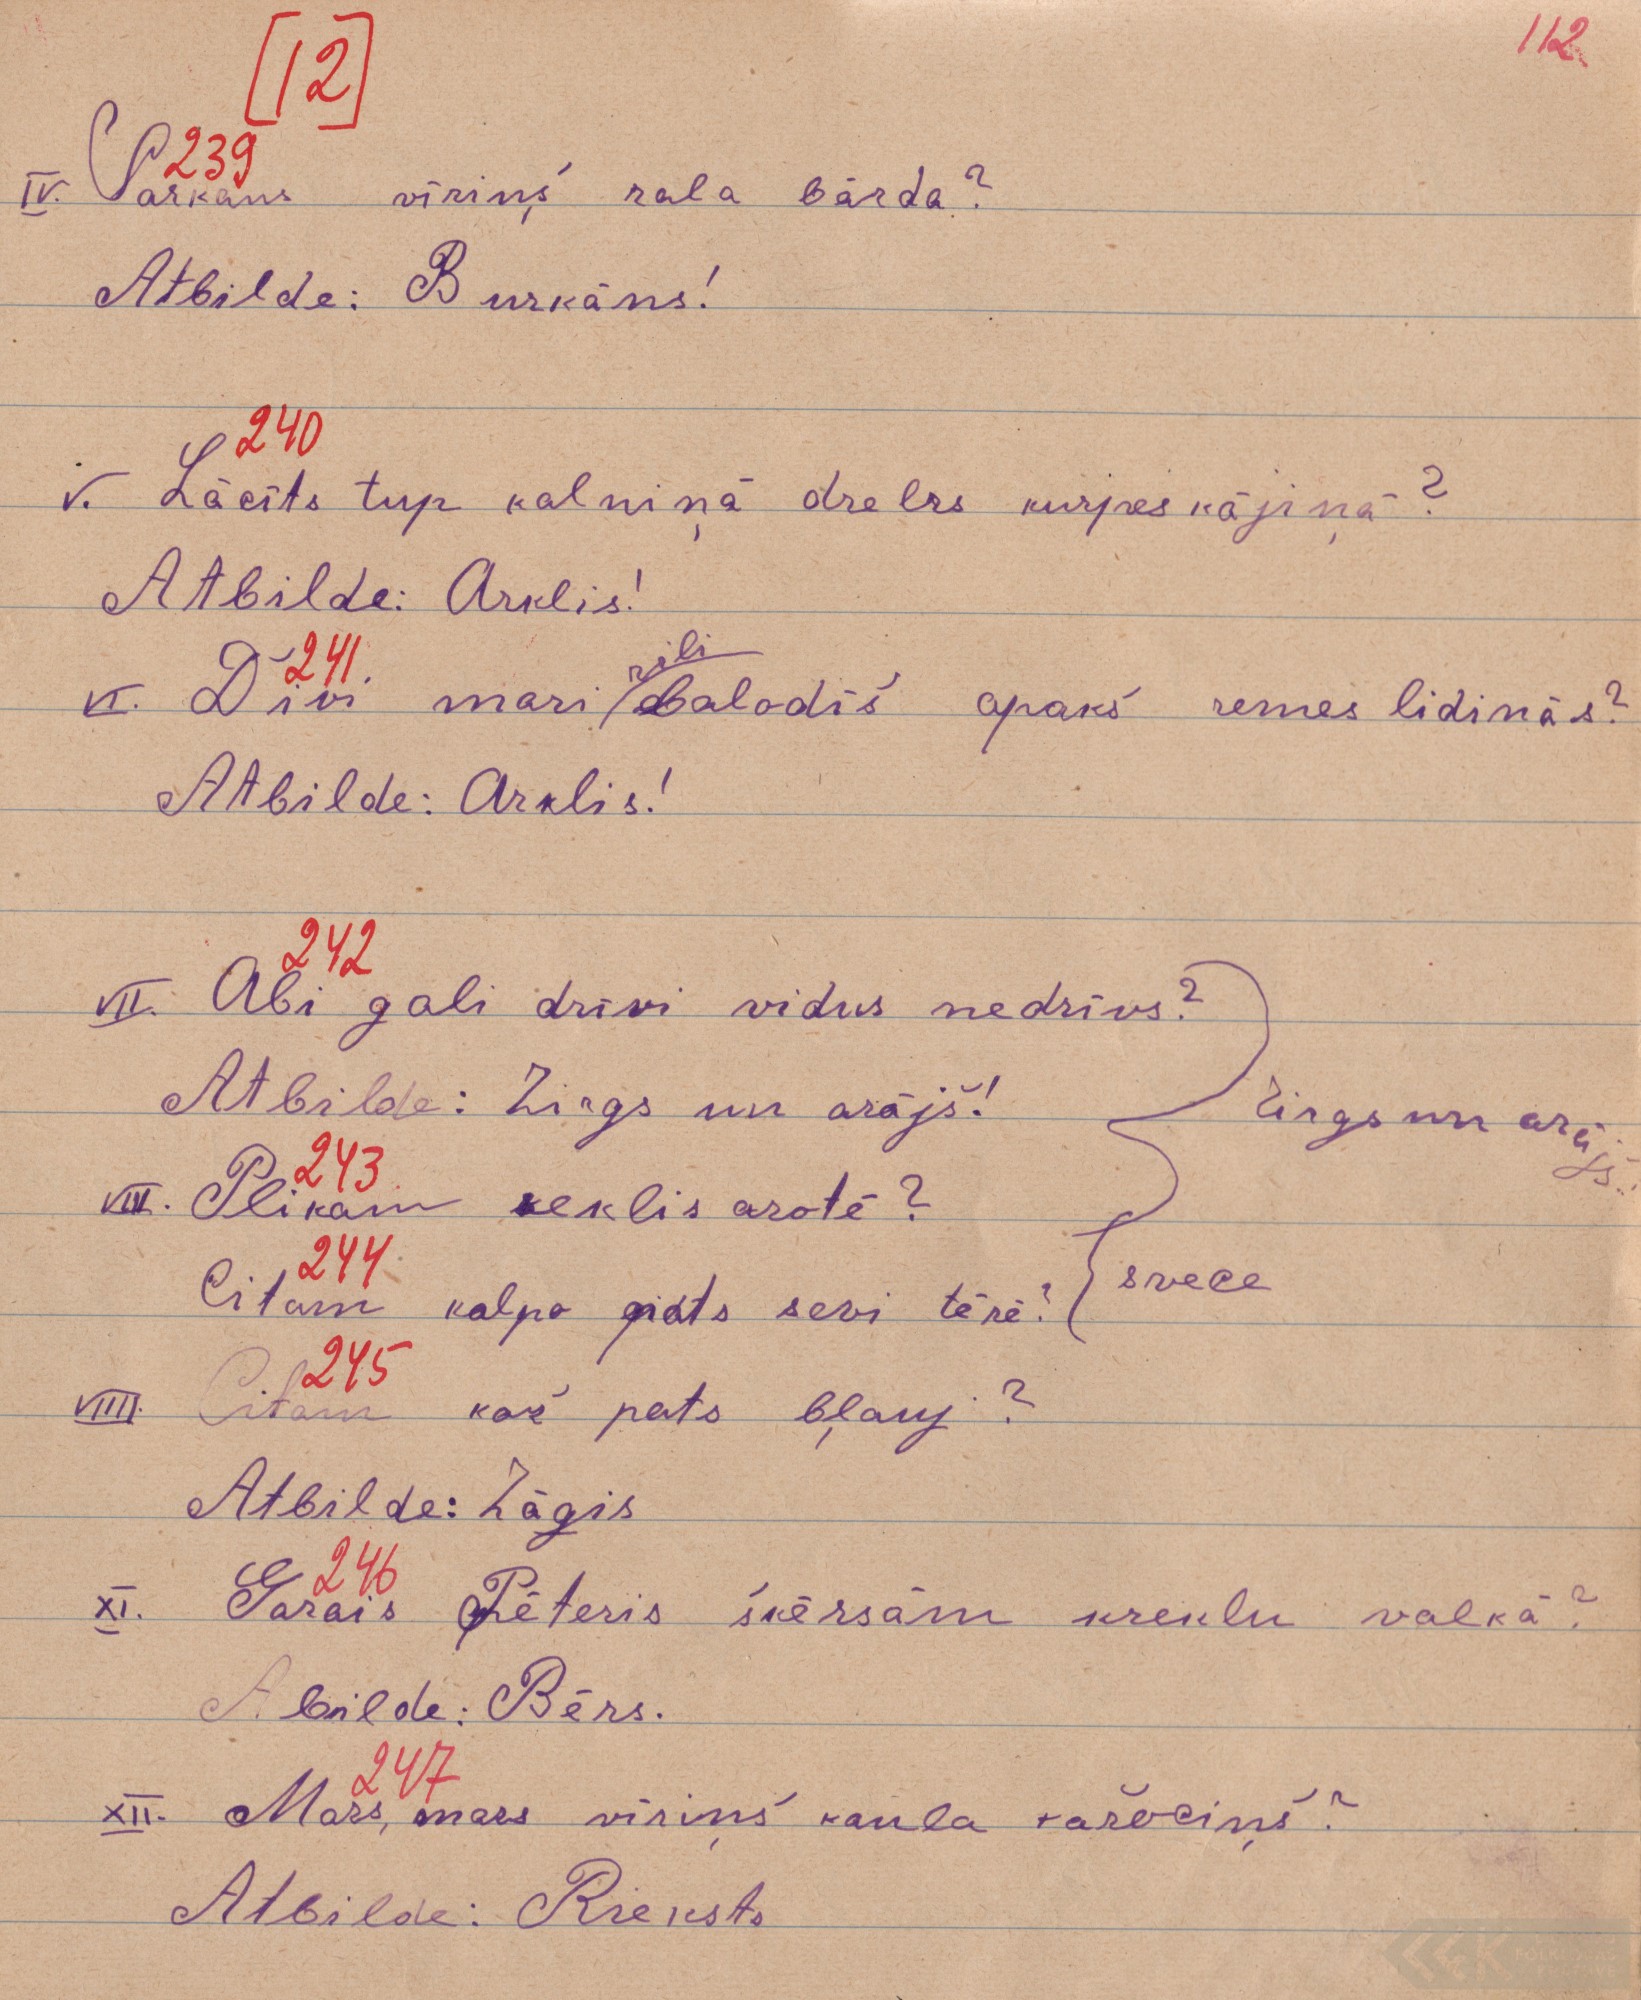 [12]
112
239
IV. Sarkans vīriņš zala bārda?
Atbilde: Burkāns!
240
V. Lācīts tup kalniņā dzelzs kurpes kājiņā?
Atbilde: Arklis!
241
zili
VI. Divi mazi balodīš apakš zemes lidinās?
Atbilde: Arklis!
242
VII. Abi gali dzīvi vidus nedzīvs?
Atbilde: Zirgs un arājš!
Zirgs un arājš.
243
VIII. Plikam keklis azotē?
244
Citam kalpo pats sevi tērē?
svece
245
VIIII. Citam kož pats bļauj?
Atbilde: Zāģis
246
XI. Garais Pēteris šķērsām kreklu valkā?
Abilde: Bērs.
247
XII. Mazs, mazs vīriņš kaula kažociņš?
Atbilde: Rieksts